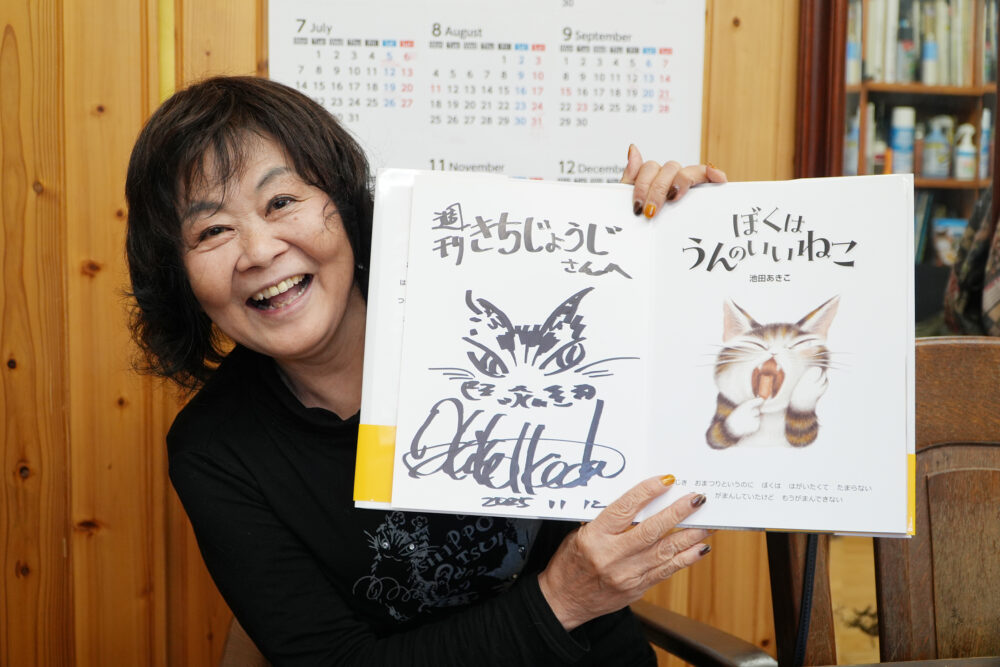 30
7 July
8 August
9 September
Mon Tue Wed Thu Fri Sat Sun
Mon Tue Wed Thu Fri Sat Sun
Mon Tue Wed Thu Fri Sat Sun
1 2 3 4 5 6
1 2 3
1 2 3 4 5 6 7
7 8 9 10 11 12 13
4 5 6 7 8 9 10
8 9 10 11 12 13 14
14 15 16 17 18 19 20
11 12 13 14 15 16 17
15 16 17 18 19 20 21
24 25 26 27
18 19 20 21 22 23 24
22 23 24 25 26 27 28
31
25 26 27 28 29 30 31
29 30
11 November
12 Decembe
週刊きちじょうじ
さんへ
Akiko Ikeda
2025 11 12
ぼくは
うんのいいねこ
池田あきこ
おまつりというのに ぼくは はがいたくて たまらない
がまんしていたけど もうがまんできない